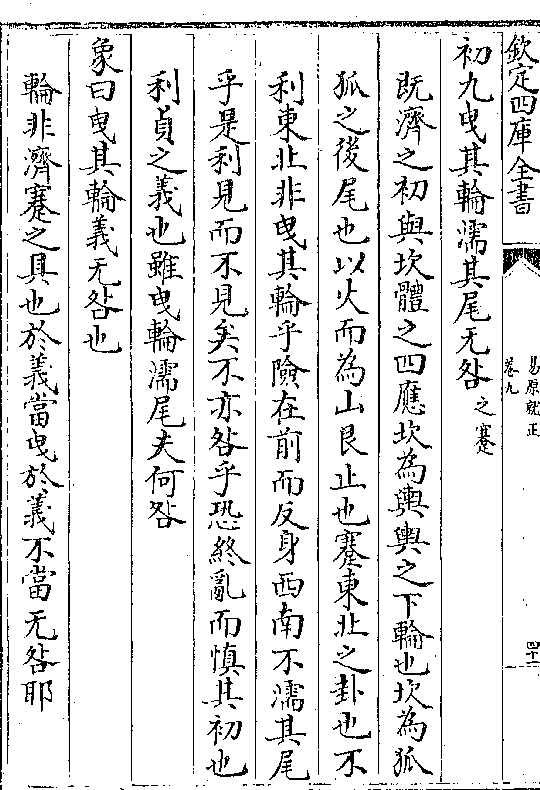 欽定四庫全書
易原就正
卷九
四十一
初九曳其輪濡其尾无咎之蹇
既濟之初與坎體之四應坎為輿輿之下輪也坎為狐
狐之後尾也以火而為山艮止也蹇東北之卦也不
利東北非曳其輪乎險在前而反身西南不濡其尾
乎是利見而不見矣不亦咎乎恐終亂而慎其初也
利貞之義也雖曳輪濡尾夫何咎
象曰曳其輪義无咎也
輪非濟蹇之具也於義當曳於義不當无咎耶